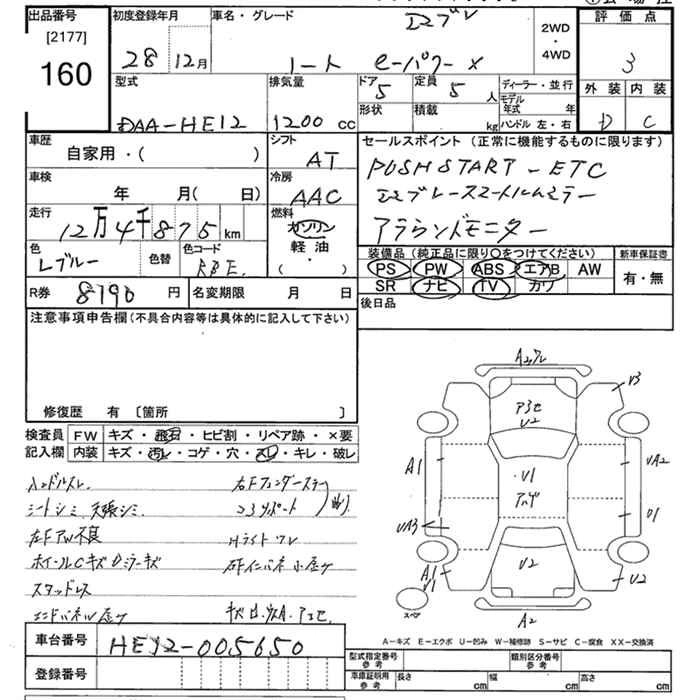 出品番号
[2177]
160
初度登録年月
28 12月
車名・グレード
ノート e-パワー X
2WD
・
4WD
評価点
3
外装 内装
D C
型式
DAA-HE12
排気量
1200 cc
ドア 5
定員 5 人
形状
積載 kg
ディーラー・並行
モデル年式 年
ハンドル 左・右
車歴
自家用・( )
シフト
AT
車検
年 月( 日)
冷房
AAC
走行
12万4千875km
燃料
ガソリン
軽油
・( )
色
Lブルー
色替
色コード
RBE
R券 8190 円
名変期限 月 日
セールスポイント (正常に機能するものに限ります)
PUSH START - ETC
アラウンドモニター
装備品 (純正品に限り○をつけてください)
PS PW ABS エアB AW
SR ナビ TV カワ
新車保証書
有・無
後日品
注意事項申告欄(不具合内容等は具体的に記入して下さい)
修復歴 有 〔箇所 〕
検査員記入欄
FW キズ・飛石・ヒビ割・リペア跡・×要
内装 キズ・汚レ・コゲ・穴・スレ・キレ・破レ
ハンドルスレ
シートシミ 天張シミ
左F AW不良
ホイールCキズ Dミラーキズ
スタッドレス
Hライトワレ
A3セ
U2
V3
A1
・U1
UA2
UA3
U1
A1
U2
U2
スペア
A2
A-キズ E-エクボ U-凹み W-補修跡 S-サビ C-腐食 XX-交換済
車台番号 HE12-005650
登録番号
型式指定番号 参考
類別区分番号 参考
車庫証明用 参考
長さ cm
幅 cm
高さ cm